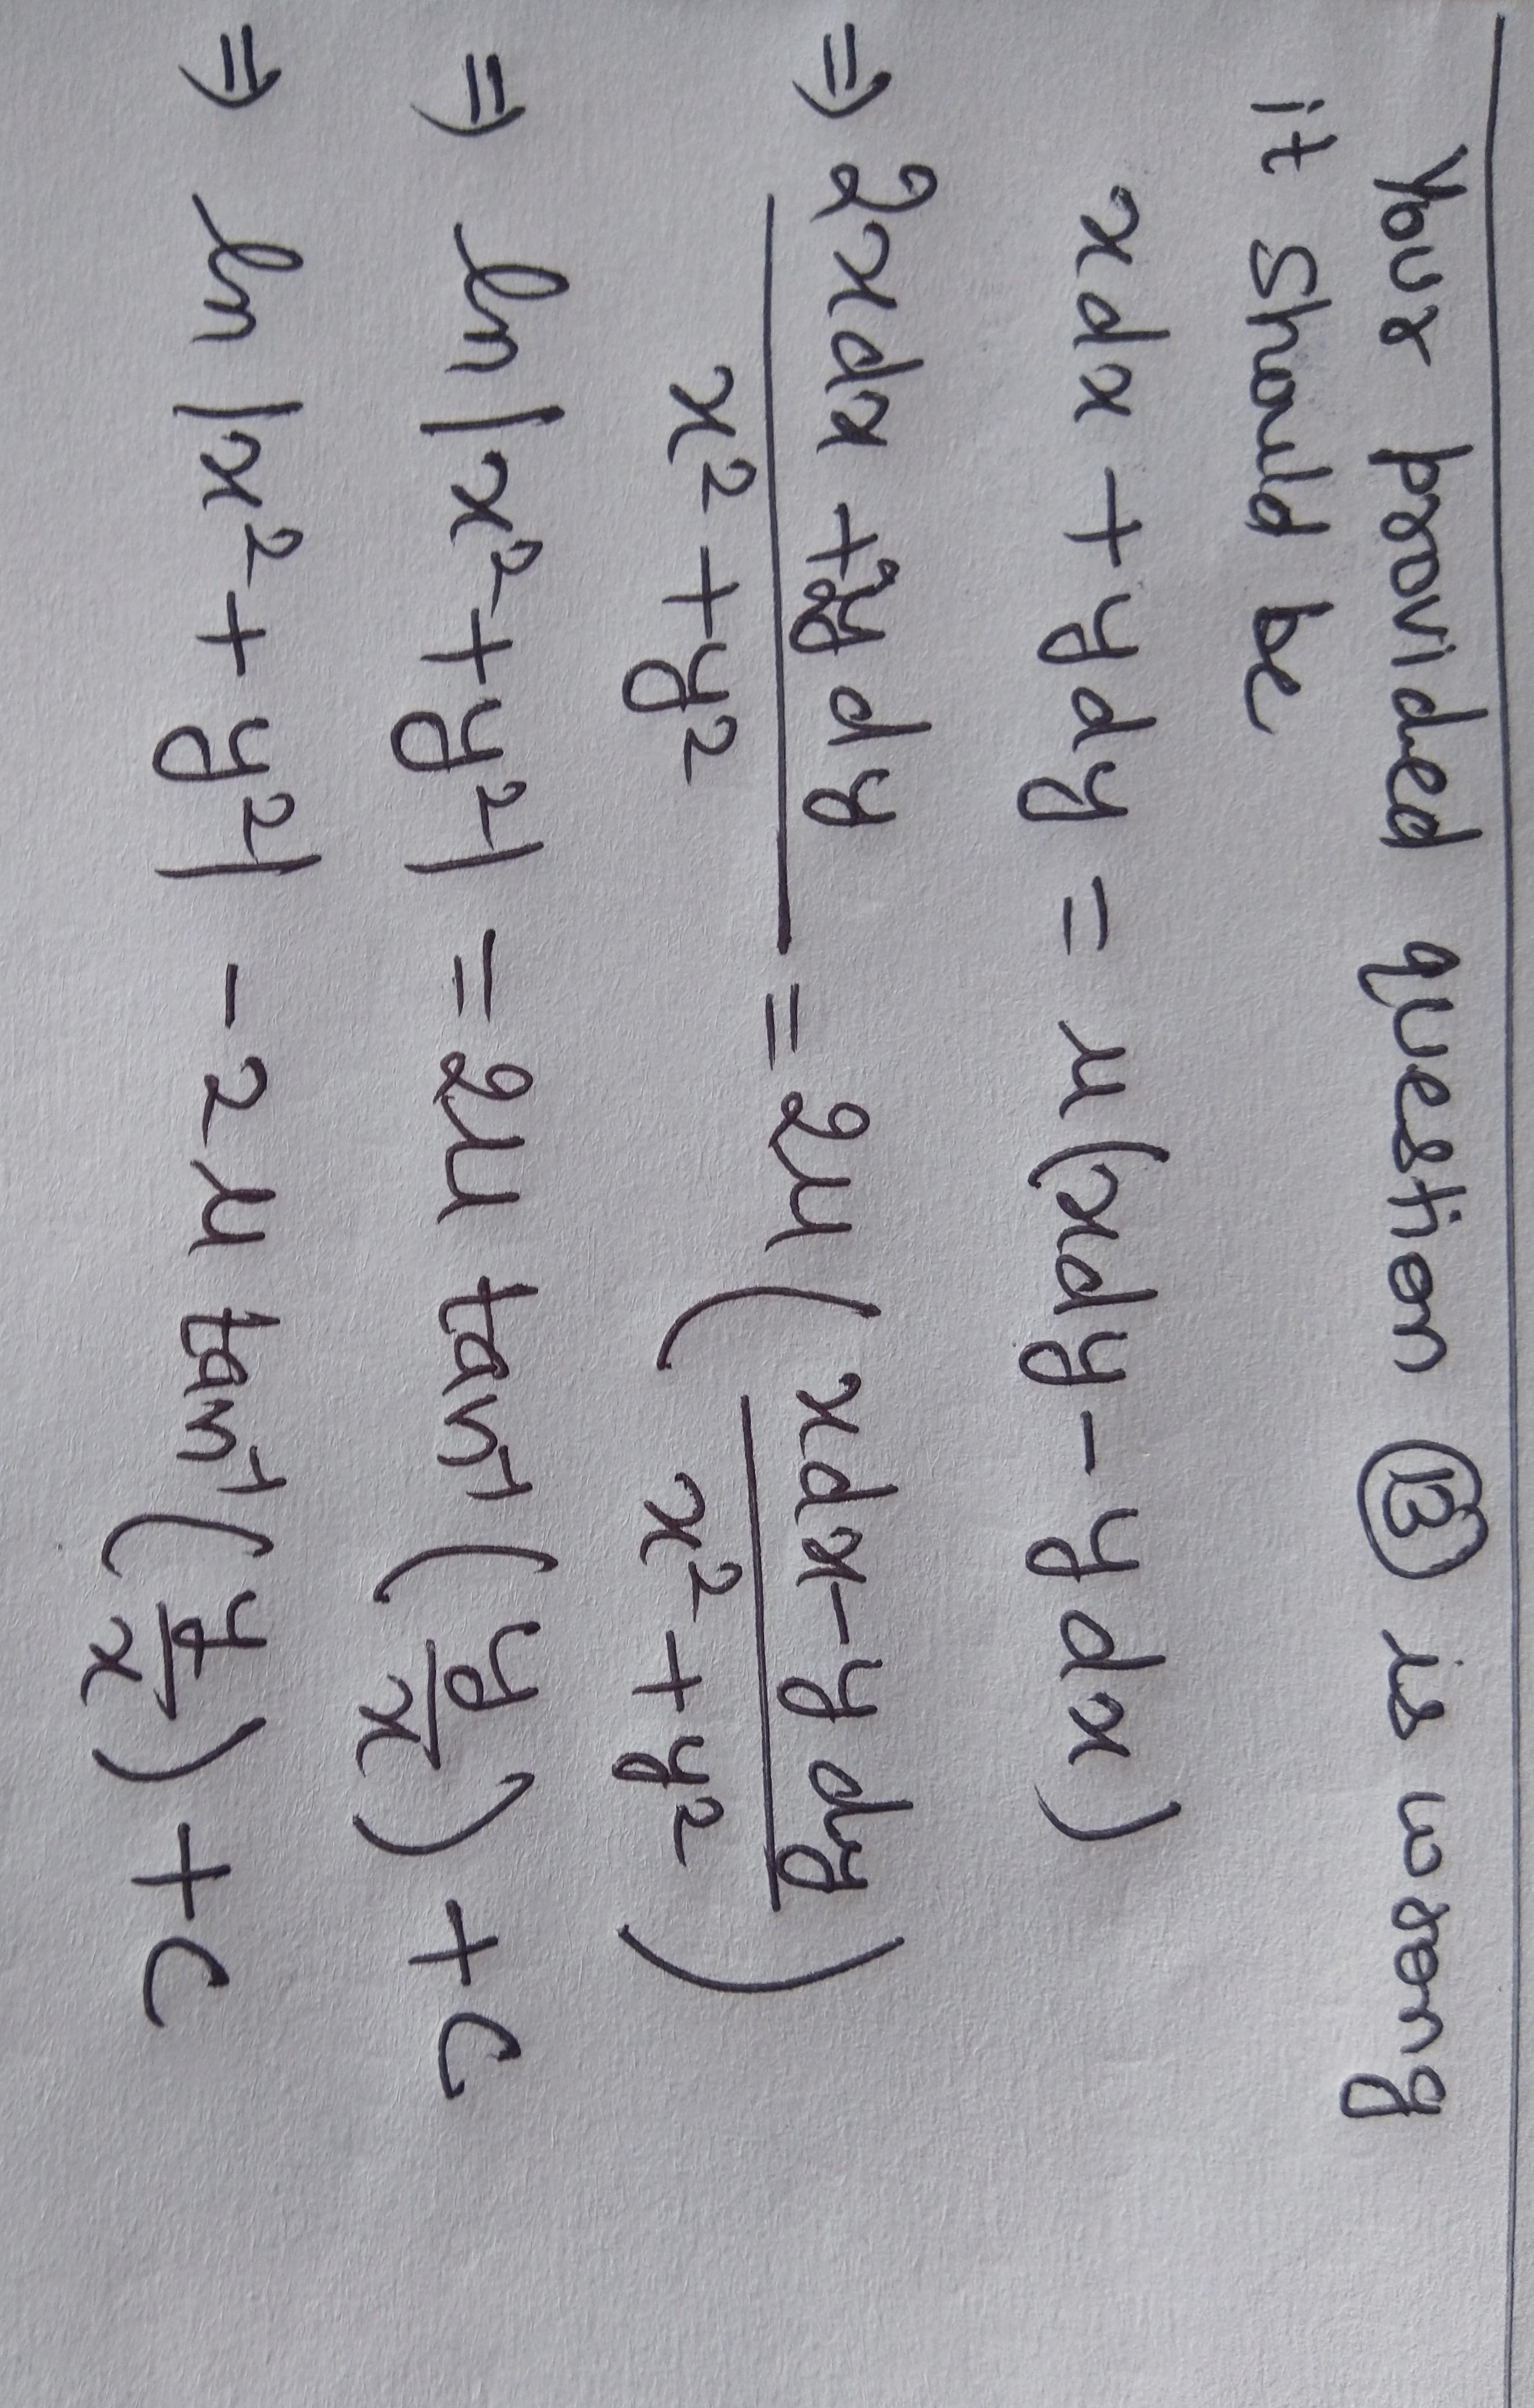 Your provided question ⑬ is wrong
it should be
xdx + ydy = μ(xdy - ydx)
⇒ 2xdx + 2ydy / x² + y² = 2μ (xdx - ydy / x² + y²)
⇒ ln |x² + y²| = 2μ tan⁻¹ (y/x) + c
⇒ ln |x² + y²| - 2μ tan⁻¹ (y/x) + c